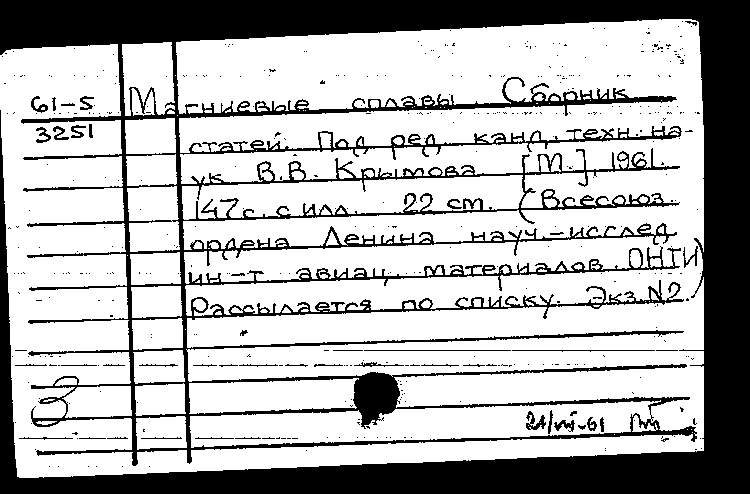 61-5 Магниевые сплавы. Сборник
3251 статей. Под ред. канд. техн. на-
ук В.В. Крымова. [М.], 1961.
147 с. с илл. 22 cm. (Всесоюз.
ордена Ленина науч.-исслед.
ин-т авиац. материалов. ОНТИ)
Рассылается по списку. Экз. N2.
3